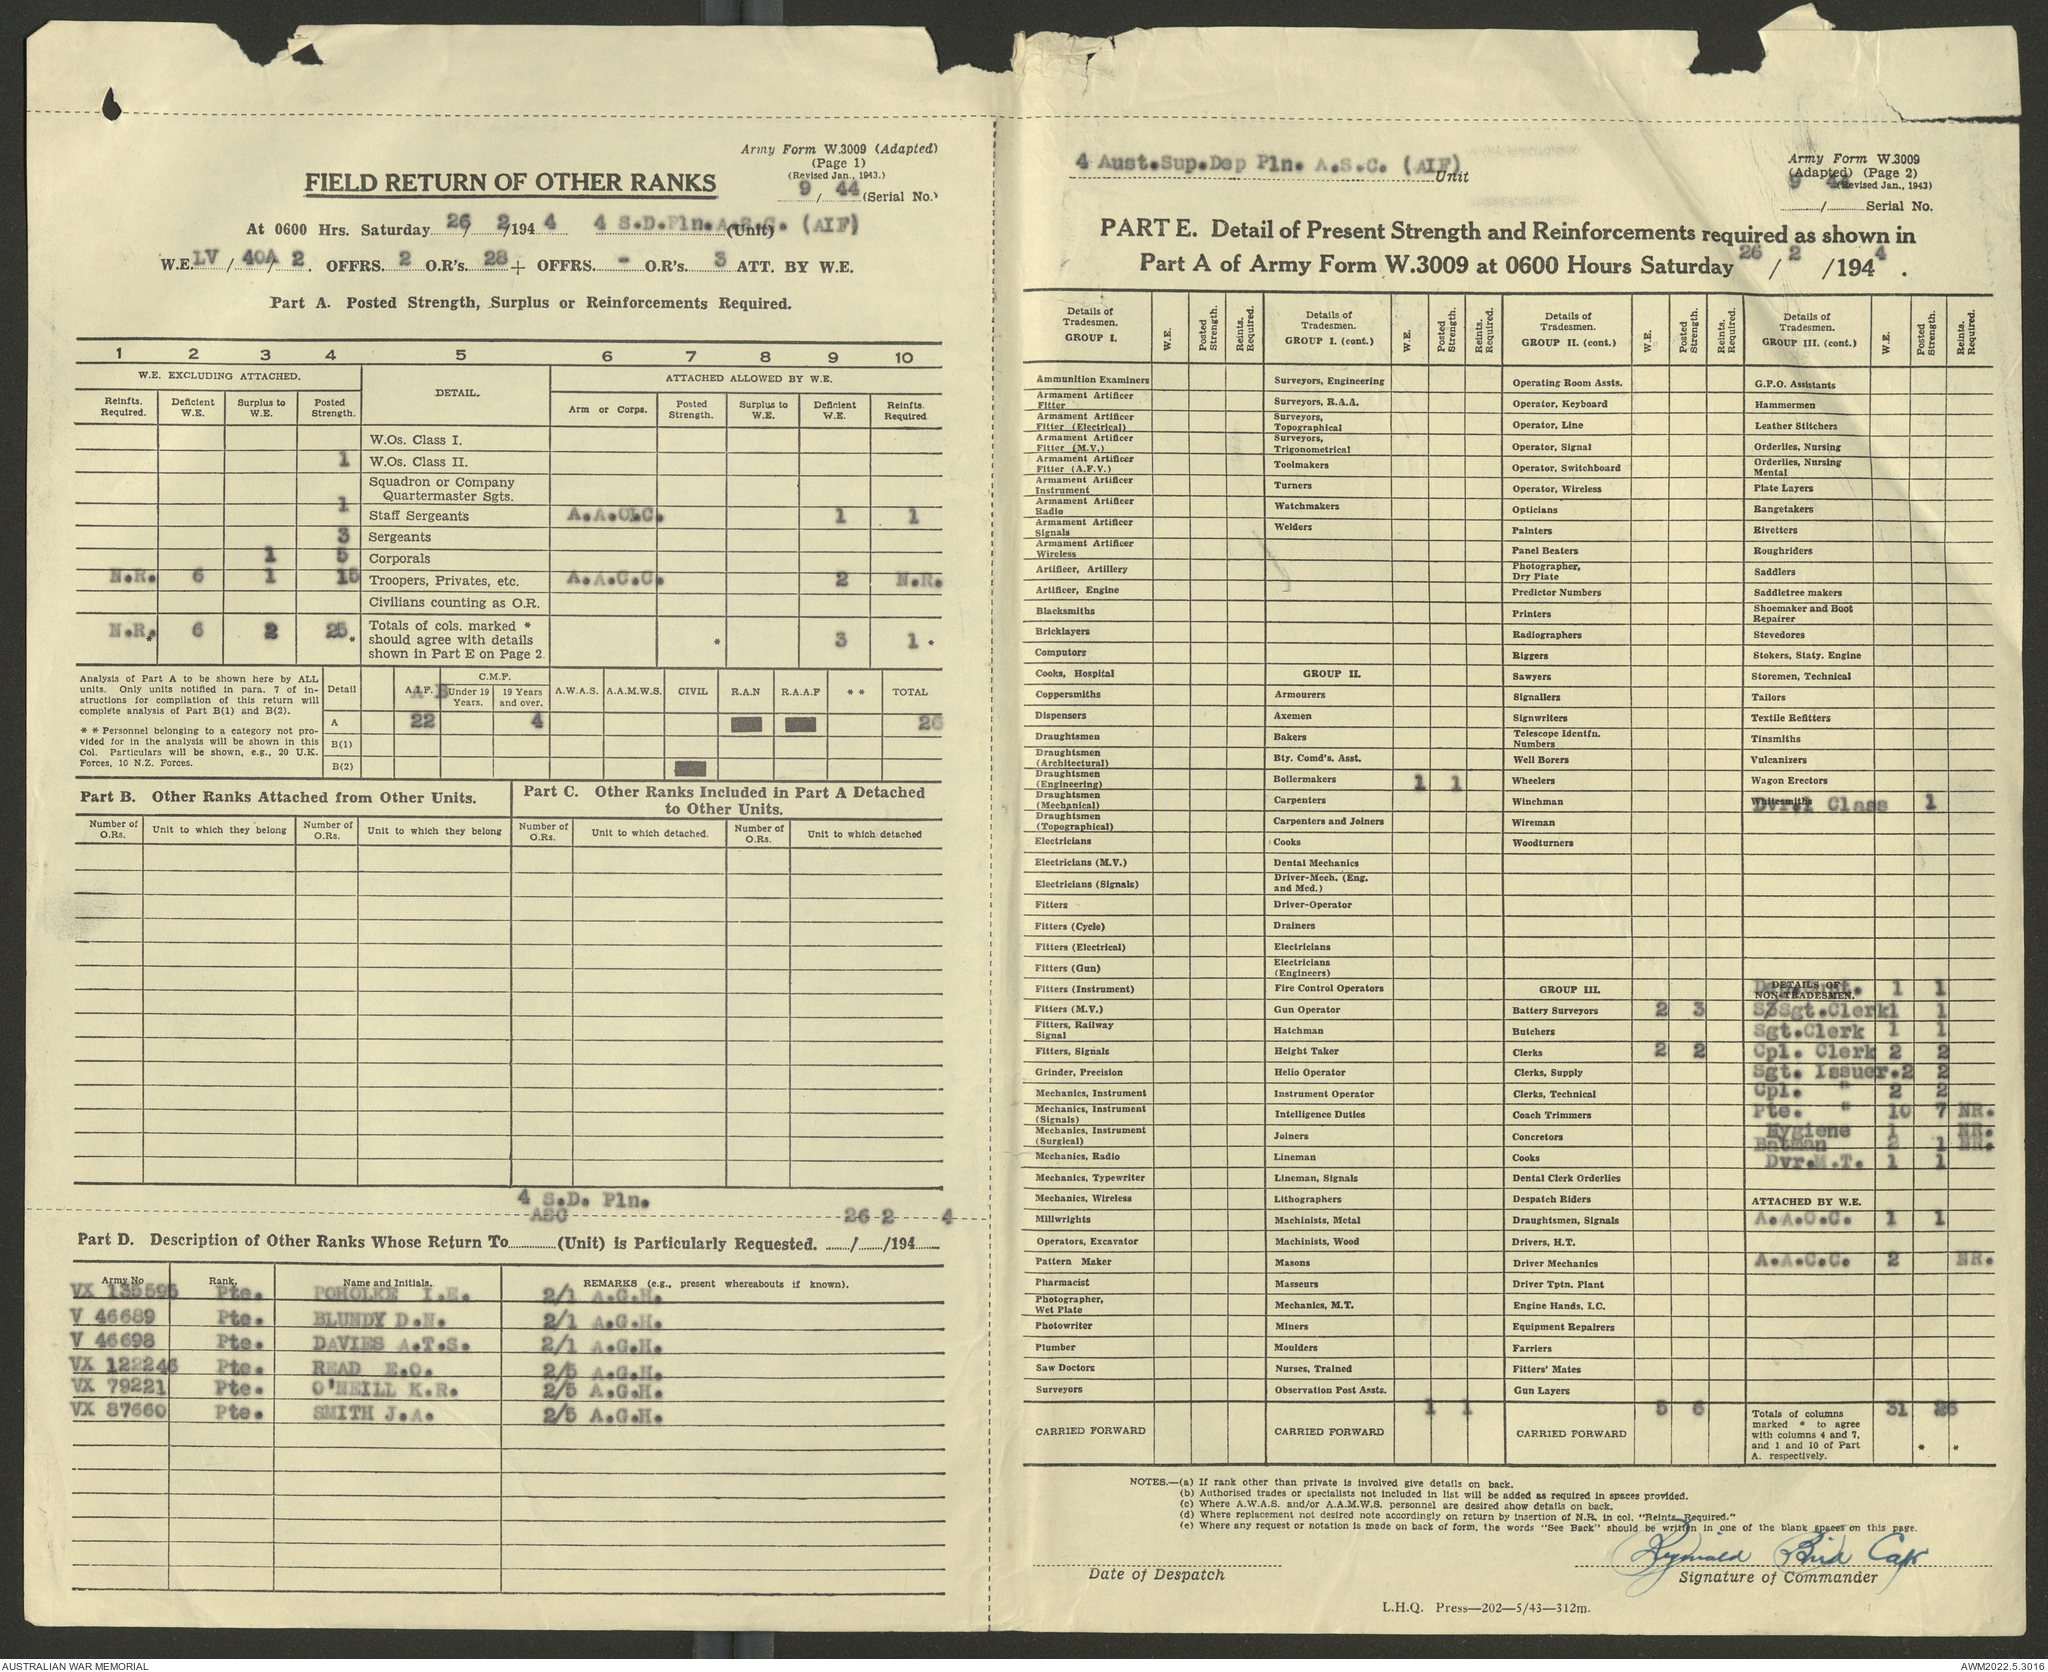 Army Form W.3009 (Adapted)
(Page 1)
(Revised Jan., 1943.)
9 / 44 (Serial No.)
FIELD RETURN OF OTHER RANKS
At 0600 Hrs. Saturday 26/ 2/194 4 4 S.D.Pln.A.S.C. (AIF) (Unit)
W.E. LV / 40A / 2. OFFRS. 2 O.R's. 28 + OFFRS. - O.R's. 3 ATT. BY W.E.
Part A. Posted Strength, Surplus or Reinforcements Required.
1 2 3 4 5 6 7 8 9 10
W.E. EXCLUDING ATTACHED. DETAIL. ATTACHED ALLOWED BY W.E.
Reinfts. Required. Deficient W.E. Surplus to W.E. Posted Strength. Arm or Corps. Posted Strength. Surplus to W.E. Deficient W.E. Reinfts. Required
W.Os. Class I.
1 W.Os. Class II.
Squadron or Company
Quartermaster Sgts.
1 Staff Sergeants A.A.O.C. 1 1
3 Sergeants
1 5 Corporals
N.R. 6 1 15 Troopers, Privates, etc. A.A.C.C. 2 N.R.
Civilians counting as O.R.
N.R.* 6 2 25 * Totals of cols. marked * should agree with details shown in Part E on Page 2. * 3 1 *
Analysis of Part A to be shown here by ALL units. Only units notified in para. 7 of instructions for compilation of this return will complete analysis of Part B(1) and B(2).
* * Personnel belonging to a category not provided for in the analysis will be shown in this Col. Particulars will be shown, e.g., 20 U.K. Forces, 10 N.Z. Forces.
C.M.F.
Detail A.I.F. Under 19 Years. 19 Years and over. A.W.A.S. A.A.M.W.S. CIVIL R.A.N R.A.A.F * * TOTAL
A 22 4 26
B(1)
B(2)
Part B. Other Ranks Attached from Other Units.
Part C. Other Ranks Included in Part A Detached to Other Units.
Number of O.Rs. Unit to which they belong Number of O.Rs. Unit to which they belong Number of O.Rs. Unit to which detached. Number of O.Rs. Unit to which detached
4 S.D. Pln.
ASC 26 2 4
Part D. Description of Other Ranks Whose Return To (Unit) is Particularly Requested. / /194
Army No Rank. Name and Initials. REMARKS (e.g., present whereabouts if known).
VX 135595 Pte. POHOLKE I.E. 2/1 A.G.H.
V 46689 Pte. BLUNDY D.N. 2/1 A.G.H.
V 46698 Pte. DAVIES A.T.S. 2/1 A.G.H.
VX 122246 Pte. READ E.O. 2/5 A.G.H.
VX 79221 Pte. O'NEILL K.R. 2/5 A.G.H.
VX 87660 Pte. SMITH J.A. 2/5 A.G.H.
4 Aust.Sup.Dep Pln. A.S.C. (AIF) Unit
Army Form W.3009
(Adapted) (Page 2)
(Revised Jan., 1943)
9 44
/ Serial No.
PART E. Detail of Present Strength and Reinforcements required as shown in
Part A of Army Form W.3009 at 0600 Hours Saturday 26 / 2 /194 4 .
Details of Tradesmen. GROUP I. W.E. Posted Strength. Reints. Required.
Ammunition Examiners
Armament Artificer Fitter
Armament Artificer Fitter (Electrical)
Armament Artificer Fitter (M.V.)
Armament Artificer Fitter (A.F.V.)
Armament Artificer Instrument
Armament Artificer Radio
Armament Artificer Signals
Armament Artificer Wireless
Artificer, Artillery
Artificer, Engine
Blacksmiths
Bricklayers
Computors
Cooks, Hospital
Coppersmiths
Dispensers
Draughtsmen
Draughtsmen (Architectural)
Draughtsmen (Engineering)
Draughtsmen (Mechanical)
Draughtsmen (Topographical)
Electricians
Electricians (M.V.)
Electricians (Signals)
Fitters
Fitters (Cycle)
Fitters (Electrical)
Fitters (Gun)
Fitters (Instrument)
Fitters (M.V.)
Fitters, Railway Signal
Fitters, Signals
Grinder, Precision
Mechanics, Instrument
Mechanics, Instrument (Signals)
Mechanics, Instrument (Surgical)
Mechanics, Radio
Mechanics, Typewriter
Mechanics, Wireless
Millwrights
Operators, Excavator
Pattern Maker
Pharmacist
Photographer, Wet Plate
Photowriter
Plumber
Saw Doctors
Surveyors
CARRIED FORWARD
Details of Tradesmen. GROUP I. (cont.) W.E. Posted Strength. Reints. Required.
Surveyors, Engineering
Surveyors, R.A.A.
Surveyors, Topographical
Surveyors, Trigonometrical
Toolmakers
Turners
Watchmakers
Welders
GROUP II.
Armourers
Axemen
Bakers
Bty. Comd's. Asst.
Boilermakers 1 1
Carpenters
Carpenters and Joiners
Cooks
Dental Mechanics
Driver-Mech. (Eng. and Med.)
Driver-Operator
Drainers
Electricians
Electricians (Engineers)
Fire Control Operators
Gun Operator
Hatchman
Height Taker
Helio Operator
Instrument Operator
Intelligence Duties
Joiners
Lineman
Lineman, Signals
Lithographers
Machinists, Metal
Machinists, Wood
Masons
Masseurs
Mechanics, M.T.
Miners
Moulders
Nurses, Trained
Observation Post Assts.
CARRIED FORWARD 1 1
Details of Tradesmen. GROUP II. (cont.) W.E. Posted Strength. Reints. Required.
Operating Room Assts.
Operator, Keyboard
Operator, Line
Operator, Signal
Operator, Switchboard
Operator, Wireless
Opticians
Painters
Panel Beaters
Photographer, Dry Plate
Predictor Numbers
Printers
Radiographers
Riggers
Sawyers
Signallers
Signwriters
Telescope Identfn. Numbers
Well Borers
Wheelers
Winchman
Wireman
Woodturners
GROUP III.
Battery Surveyors 2 3
Butchers
Clerks 2 2
Clerks, Supply
Clerks, Technical
Coach Trimmers
Concretors
Cooks
Dental Clerk Orderlies
Despatch Riders
Draughtsmen, Signals
Drivers, H.T.
Driver Mechanics
Driver Tptn. Plant
Engine Hands, I.C.
Equipment Repairers
Farriers
Fitters' Mates
Gun Layers
CARRIED FORWARD 5 6
Details of Tradesmen. GROUP III. (cont.) W.E. Posted Strength. Reints. Required.
G.P.O. Assistants
Hammermen
Leather Stitchers
Orderlies, Nursing
Orderlies, Nursing Mental
Plate Layers
Rangetakers
Rivetters
Roughriders
Saddlers
Saddletree makers
Shoemaker and Boot Repairer
Stevedores
Stokers, Staty. Engine
Storemen, Technical
Tailors
Textile Refitters
Tinsmiths
Vulcanizers
Wagon Erectors
Whitesmiths
Dvr.1 Class 1
DETAILS OF NON-TRADESMEN. 1 1
S/Sgt.Clerk 1 1
Sgt.Clerk 1 1
Cpl. Clerk 2 2
Sgt. Issuer. 2 2
Cpl. " 2 2
Pte. " 10 7 NR.
Hygiene 1 NR.
Batman 2 1 NR.
Dvr.M.T. 1 1
ATTACHED BY W.E.
A.A.O.C. 1 1
A.A.C.C. 2 NR.
Totals of columns marked * to agree with columns 4 and 7, and 1 and 10 of Part A. respectively. 31 26 * *
NOTES.—(a) If rank other than private is involved give details on back.
(b) Authorised trades or specialists not included in list will be added as required in spaces provided.
(c) Where A.W.A.S. and/or A.A.M.W.S. personnel are desired show details on back.
(d) Where replacement not desired note accordingly on return by insertion of N.R. in col. "Reints. Required."
(e) Where any request or notation is made on back of form, the words "See Back" should be written in one of the blank spaces on this page.
Reginald Bird Capt
Date of Despatch
Signature of Commander
L.H.Q. Press—202—5/43—312m.
AUSTRALIAN WAR MEMORIAL
AWM2022.5.3016